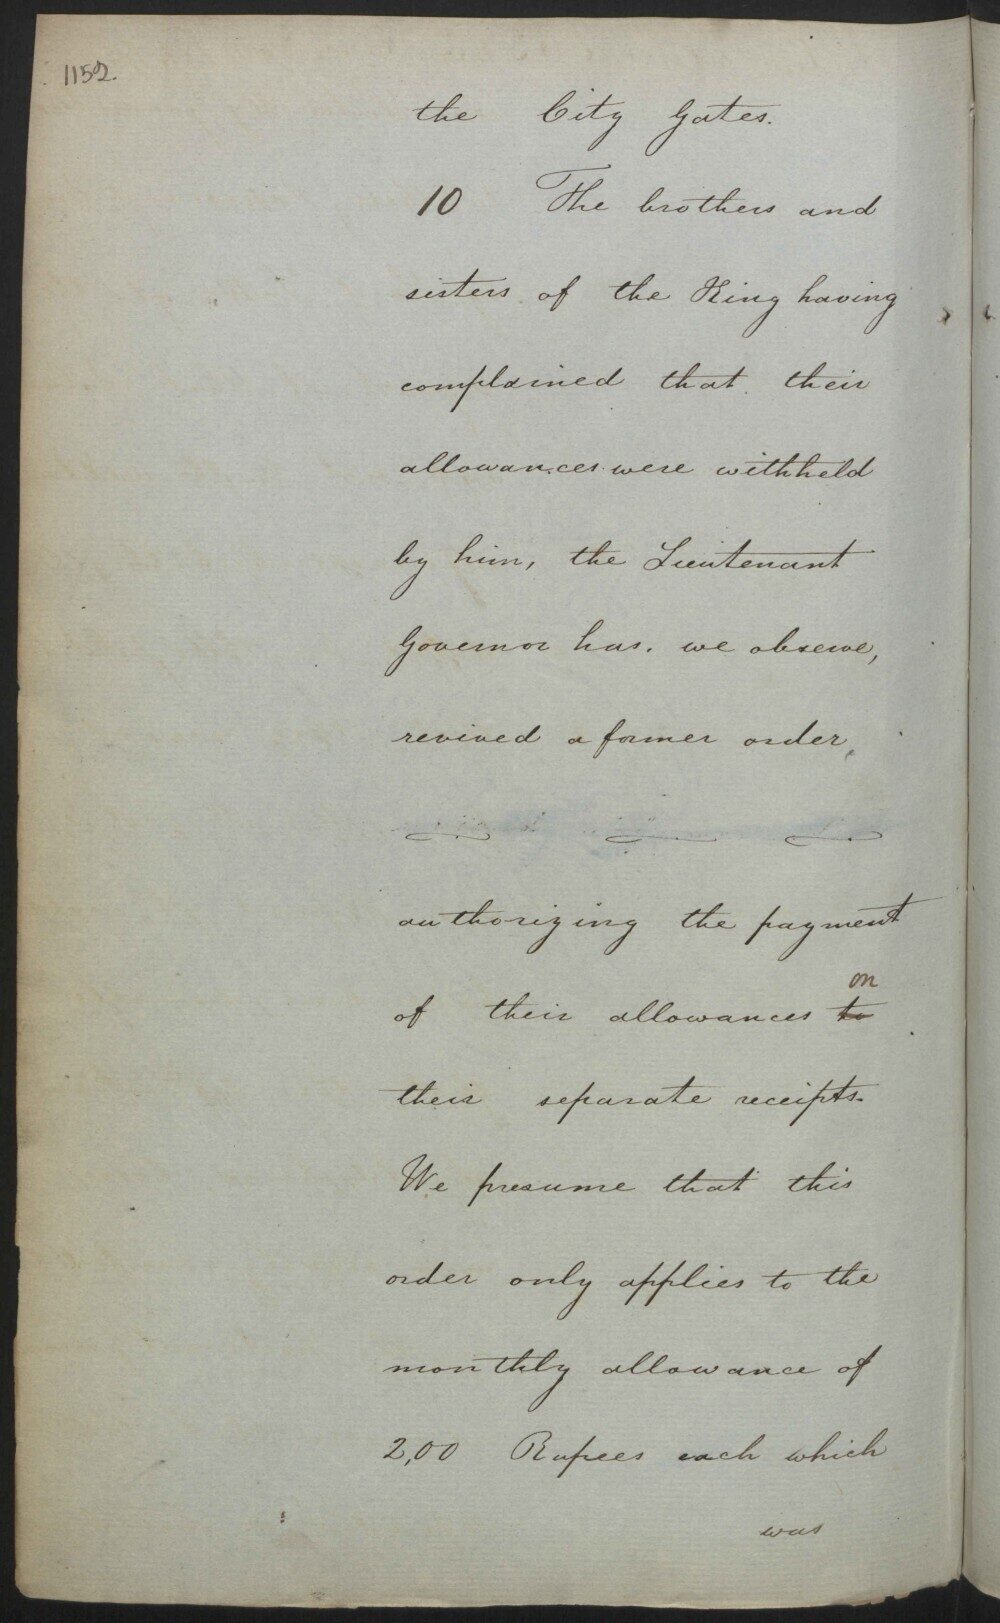 1152.
the City Gates.
10 The brothers and
sisters of the King having
complained that their
allowances were withheld
by him, the Lieutenant
Governor has. we observe,
revived a former order,
authorizing the payment
on
of their allowances to
their separate receipts.
We presume that this
order only applies to the
monthly allowance of
2,00 Rupees each which
was